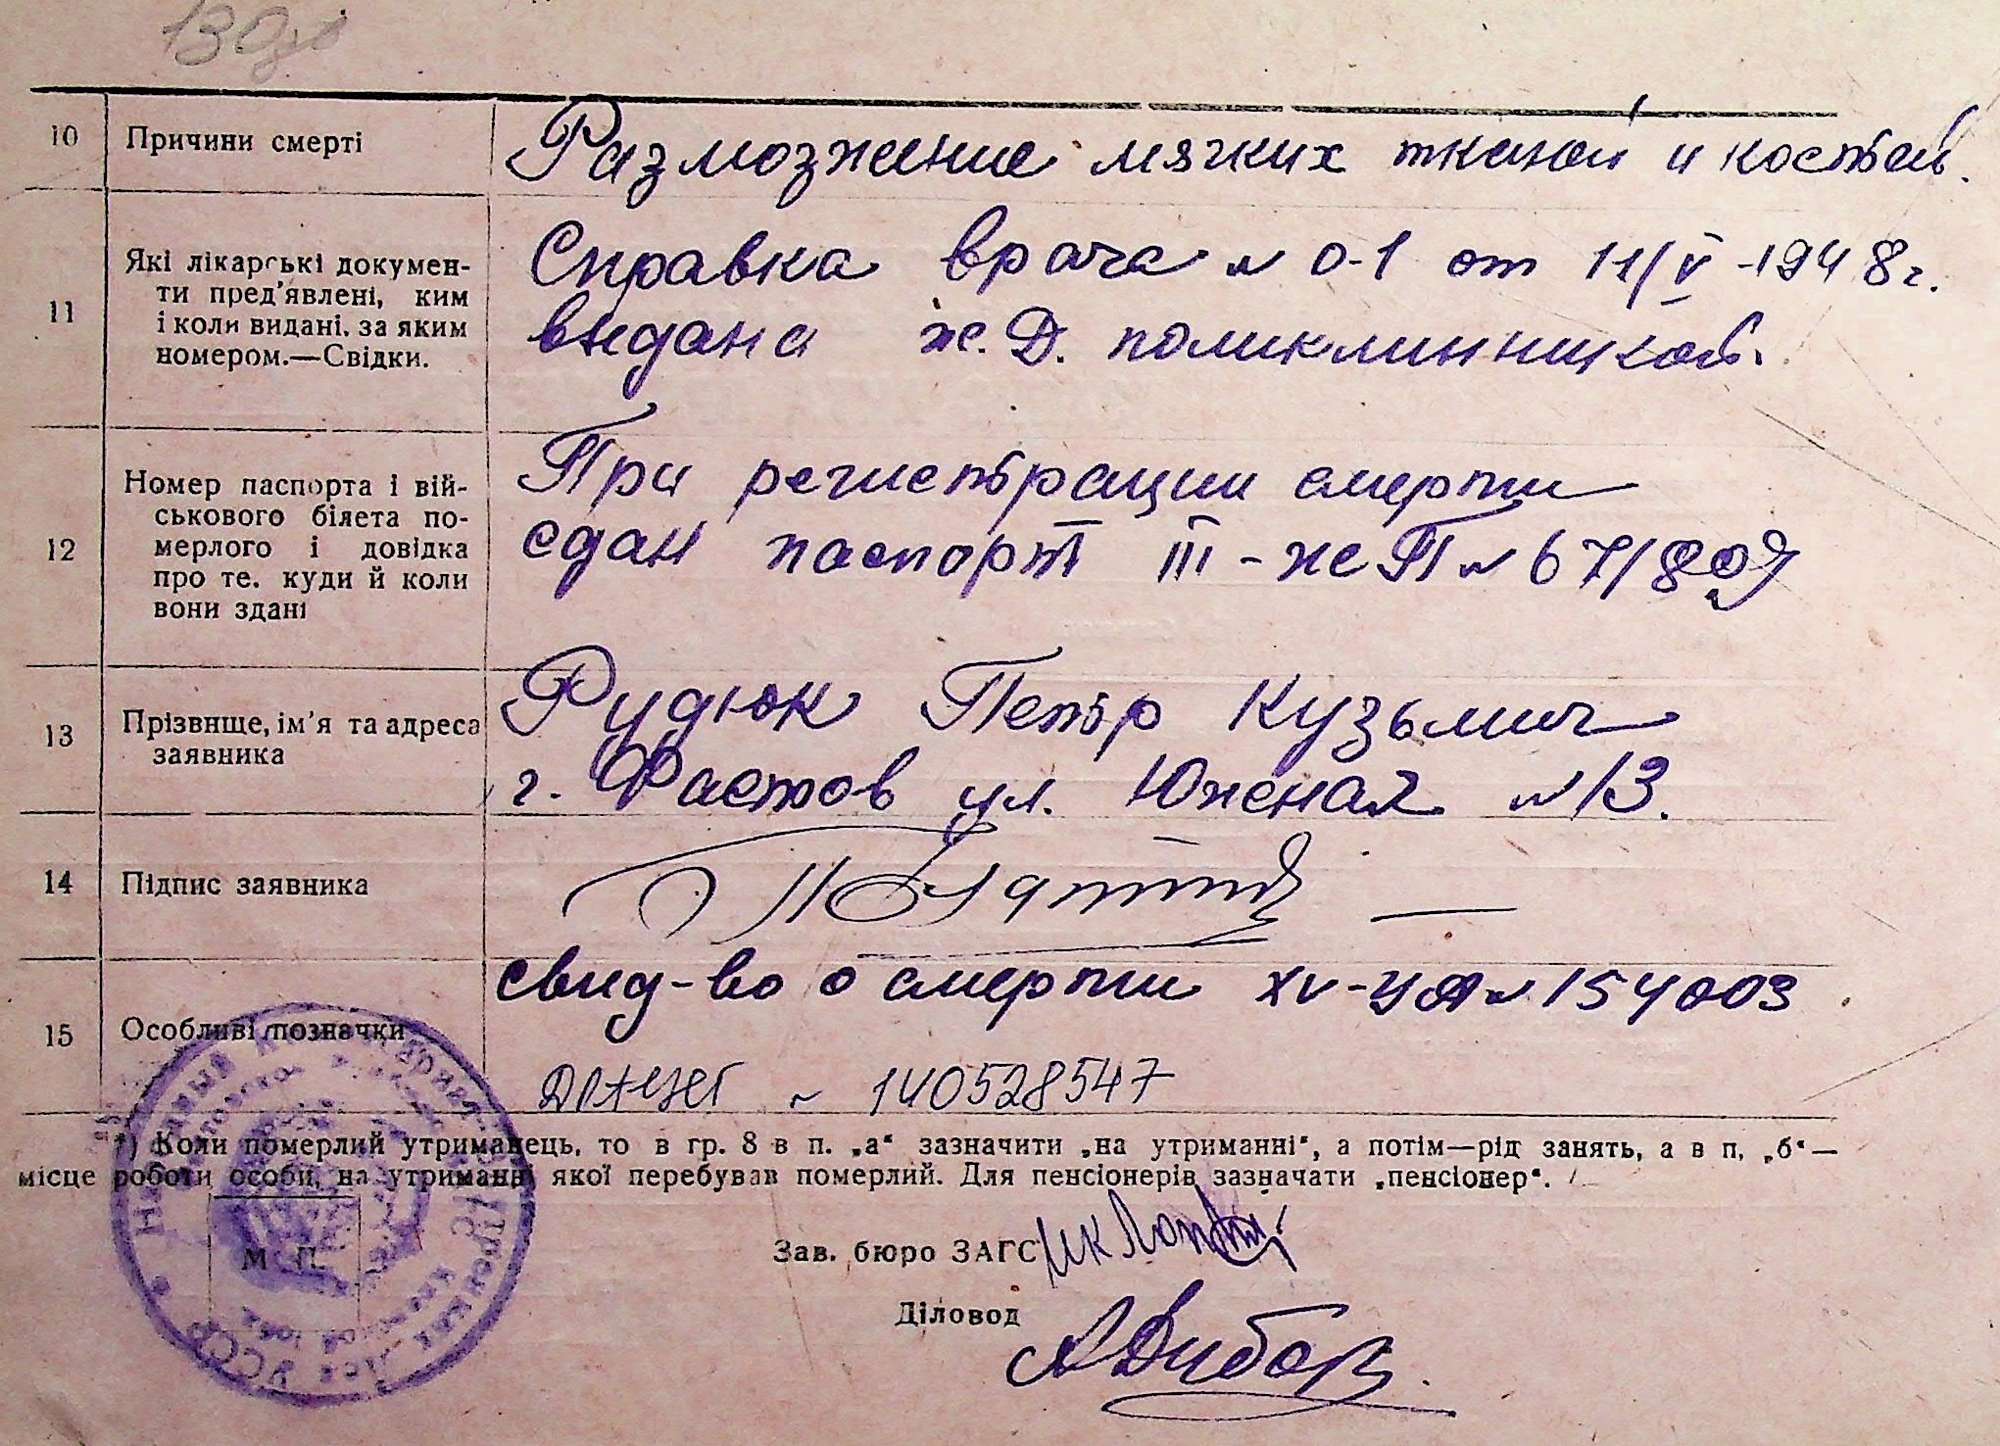 10 Причини смерті Размозжение мягких тканей и костей.
11 Які лікарські докумен-
ти пред'явлені, ким
і коли видані, за яким
номером.—Свідки.
Справка врача № 0-1 от 11/V-1948г.
выдана ж.д. поликлинникой.
12 Номер паспорта і вій-
ськового білета по-
мерлого і довідка
про те, куди й коли
вони здані
При регистрации смерти
сдан паспорт III-жП № 67/809
13 Прізвище, ім'я та адреса
заявника
Рудюк Петр Кузьмич
г. Фастов ул. Южная № 13.
14 Підпис заявника
15 Особливі позначки
свид-во о смерти XV-УЯ № 154003
140528547
*) Коли померлий утриманець, то в гр. 8 в п. „а“ зазначити „на утриманні“, а потім—рід занять, а в п. „б“—
місце роботи особи, на утриманні якої перебував померлий. Для пенсіонерів зазначати „пенсіонер“.
М. П.
Зав. бюро ЗАГС
Діловод
УССР